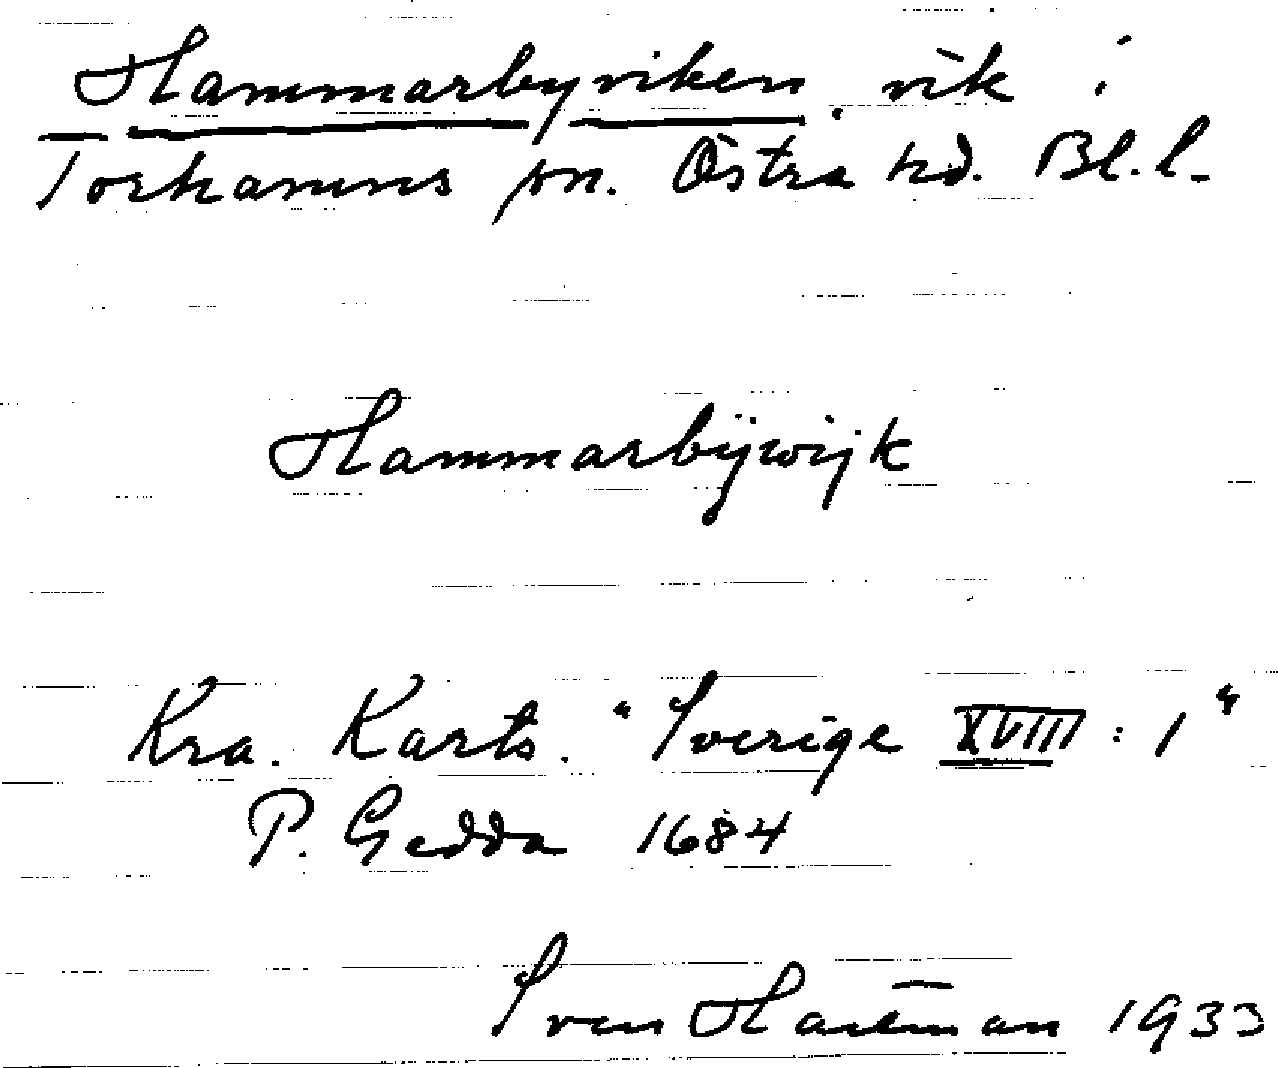 Hammarbyviken, vik i
Torhamns sn. Östra hd. Bl. l.
Hammarbÿwijk
Kra. Karts. "Sverige XVIII : 1"
P. Gedda 1684
Sven Hartman 1933